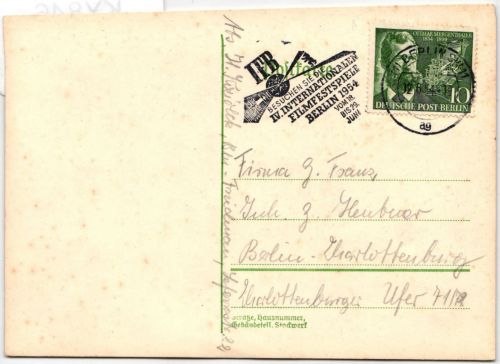 Postkarte
IFB
BESUCHEN SIE DIE
IV. INTERNATIONALEN
FILMFESTSPIELE
BERLIN 1954
VOM 18.
BIS 29.
JUNI
OTTMAR MERGENTHALER
1854 - 1899
DEUTSCHE POST BERLIN
10
BERLIN
ag
Firma G. Franz,
Inh. G.
Berlin-Charlottenburg
Charlottenburger Ufer 71/72
Straße, Hausnummer,
Gebäudeteil, Stockwerk
Abs. W.